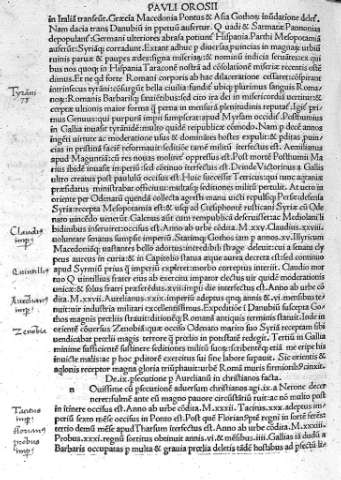 PAVLI OROSII
in Italiā transeūt. Græcia Macedonia Pontus & Asia Gothoꝝ inūdatione delef.
Nam dacia trans Danubiū in ppetuū aufertur. Q uadi & Sarmatæ Pannonias
depopulant͛. Germani ulteriores abrasa potiunt͛ Hispania. Parthi Mesopotamiā
auferūt: Syriāq; corradunt. Extant adhuc p diuersas puincias in magnaꝝ urbiū
ruinis paruæ & paupes ædes: signa miseriaꝝ: & nominū indicia seruātes: ex qui
bus nos quoq; in Hispania Taraconē nostrā ad cōsolationē miseriæ recentis oste
dimus. Et ne qd forte Romani corporis ab hac dilaceratione cessaret: cōspirant
intrinsecus tyrāni: cōsurgūt bella ciuilia: fundit͛ ubiq; plurimus sanguis Roma
noꝝ: Romanis Barbarisq; sæuiētibus:
prius Genuus: qui purpurā impii sumpserat: apud Myrsam occidit͛. Posthumus
in Gallia inuasit tyrānidē: multo quidē reipublicæ cōmodo. Nam p decē annos
ingēti uirtute ac moderatione usus & dominātes hostes expulit: & pditas puin
cias in pristinā faciē reformauit: seditiōe tamē militū iterfectus est. Aemilianus
apud Maguntiā: cū res nouas moliret͛ oppressus est. Post mortē Posthumii Ma
rius ibidē inuasit imperiū: sed cōtinuo iterfectus est. Deinde Victorinus a Gallis
ultro creatus post paululū occisus est. Huic successit Tetricus: qui tunc
præsidatus ministrabat officium: multasq; seditiones militū pertulit. At uero in
oriente per Odenatū quendā collecta agresti manu uicti repulsiq; Persæ: defensa
Syria: recepta Mesopotamia est: &
natus uincēdo uenerūt.
bidinibus inseruit: occisus est. Anno ab urbe cōdita. M. xxv. Claudius. xxviii.
uoluntate senatus sumpsit imperiū. Statimq; Gothos iam p annos. xv. Illyricum
Macedoniāq; uastantes bello adortus: incredibili strage deleuit: cui a senatu cly
peus aureus in curia: & in Capitolio statua æque aurea decreta est: sed continuo
apud Syrmiū priusq; impii expleret: morbo correptus interiit. Claudio mor
tuo Q uintillus frater eius ab exercitu imperator electus uir quidē moderationis
unicæ: & solus fratri præferēdus: xvii. impii die interfectus est. Anno ab urbe cō
dita. M. xxvii. Aurelianus. xxix. imperiū adeptus qnq; annis & vi. mensibus te-
nuit: uir industria militari excellentissimus. Expeditione ī Danubiū suscepta Go
thos magnis præliis fuit: ditionēq; Romanā antiquis terminis statuit. Inde in
orientē cōuersus Zenobiā: quæ occiso Odenato marito suo Syriā receptam sibi
uendicabat præliis magis terrore q̄ prælio in potestatē redegit. Tetricū in Gallia
minime sufficientē sustinere seditiones militū suoꝝ: scribentēq; etiā me eripe his
inuicte malis: ac p hoc pditorē exercitus sui sine labore supauit. Sic orientis &
aqlonis receptor magna gloria triūphauit: urbē Romā muris firmioribꝰ cinxit.
De. ix. psecutione p Aurelianū in christianos facta.
n Ouissime cū psecutionē aduersum christianos agi. ix. a Nerone decer
neret: fulmē ante eū magno pauore circūstātiū ruit: ac nō multo post
in itinere occisus est. Anno ab urbe cōdita. M. xxxii. Tacitus. xxx. adeptus im-
periū sexto mēse occisus in Ponto est. Post quē Florianꝰ pē regni in forte interfec
tertio demū mēse apud Tharsum iterfectus est. Anno ab urbe cōdita. M. xxxiii.
Probus. xxxi. regnū sortitus obtinuit annis. vi. & mēsibus. iiii. Gallias iā dudū a
Barbaris occupatas p multa & grauia prælia deletis tādē hostibus ad pfectū li:
Tyrāni
Claudius
imp;
Quintillus
Aurelianus
imp;
Zenobia
Tacitus
imp;
florianꝰ
probus
imp;